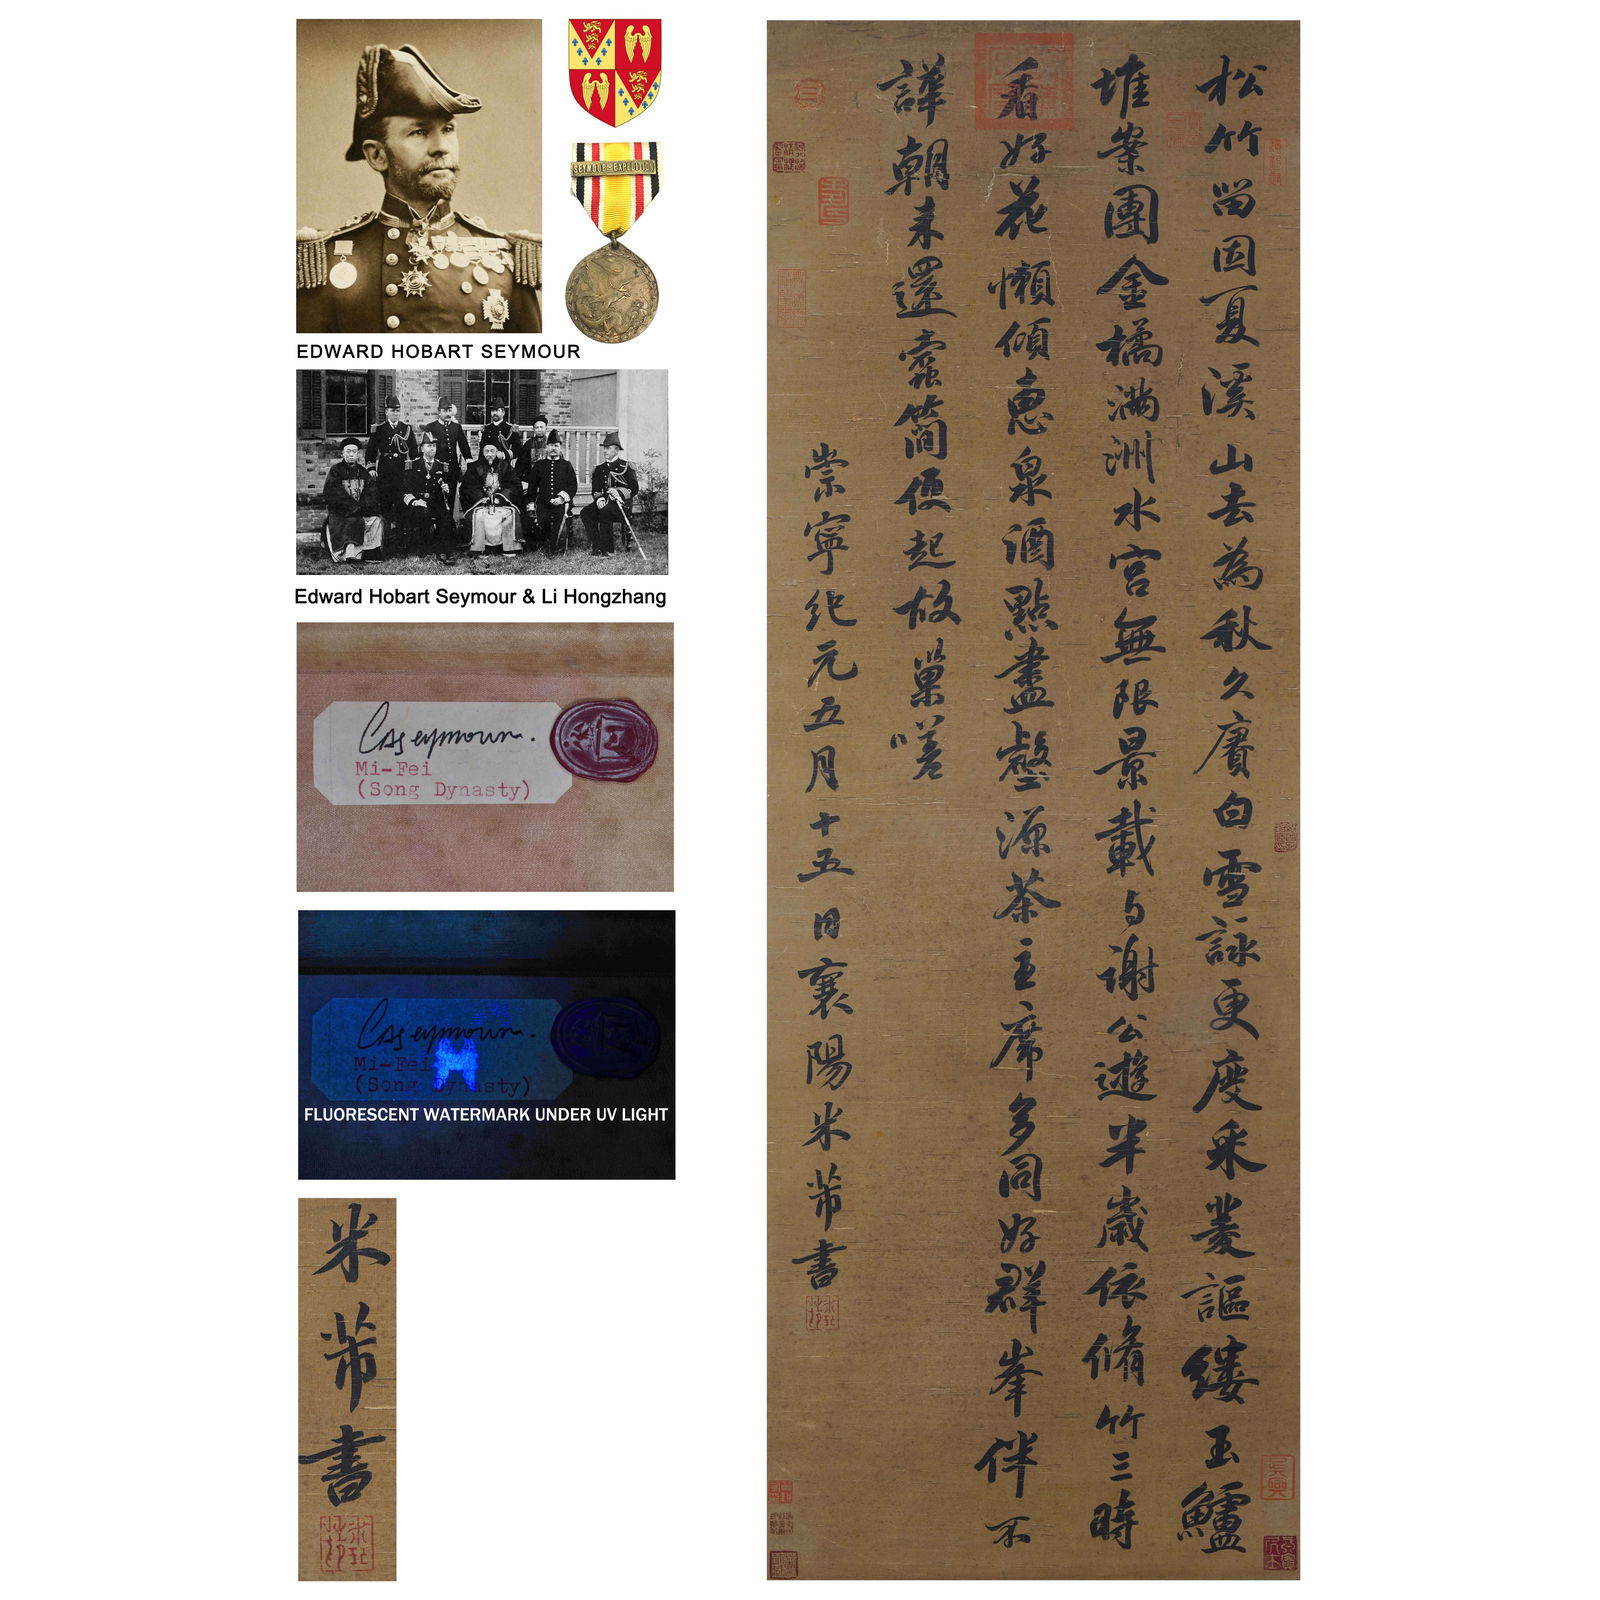 EDWARD HOBART SEYMOUR
SEYMOUR EXPEDITION
Edward Hobart Seymour & Li Hongzhang
Mi-Fei
(Song Dynasty)
Mi-Fei
(Song Dynasty)
FLUORESCENT WATERMARK UNDER UV LIGHT
米芾書
松竹留因夏溪山去為秋久賡白雪詠更度采菱謳縷玉鱸
堆案團金橘滿洲水宮無限景載与謝公遊半歲依脩竹三時
看好花懶傾惠泉酒點盡壑源茶主席多同好群峯伴不
譁朝来還蠹簡便起故巢嗟
崇寧紀元五月十五日襄陽米芾書
吳興